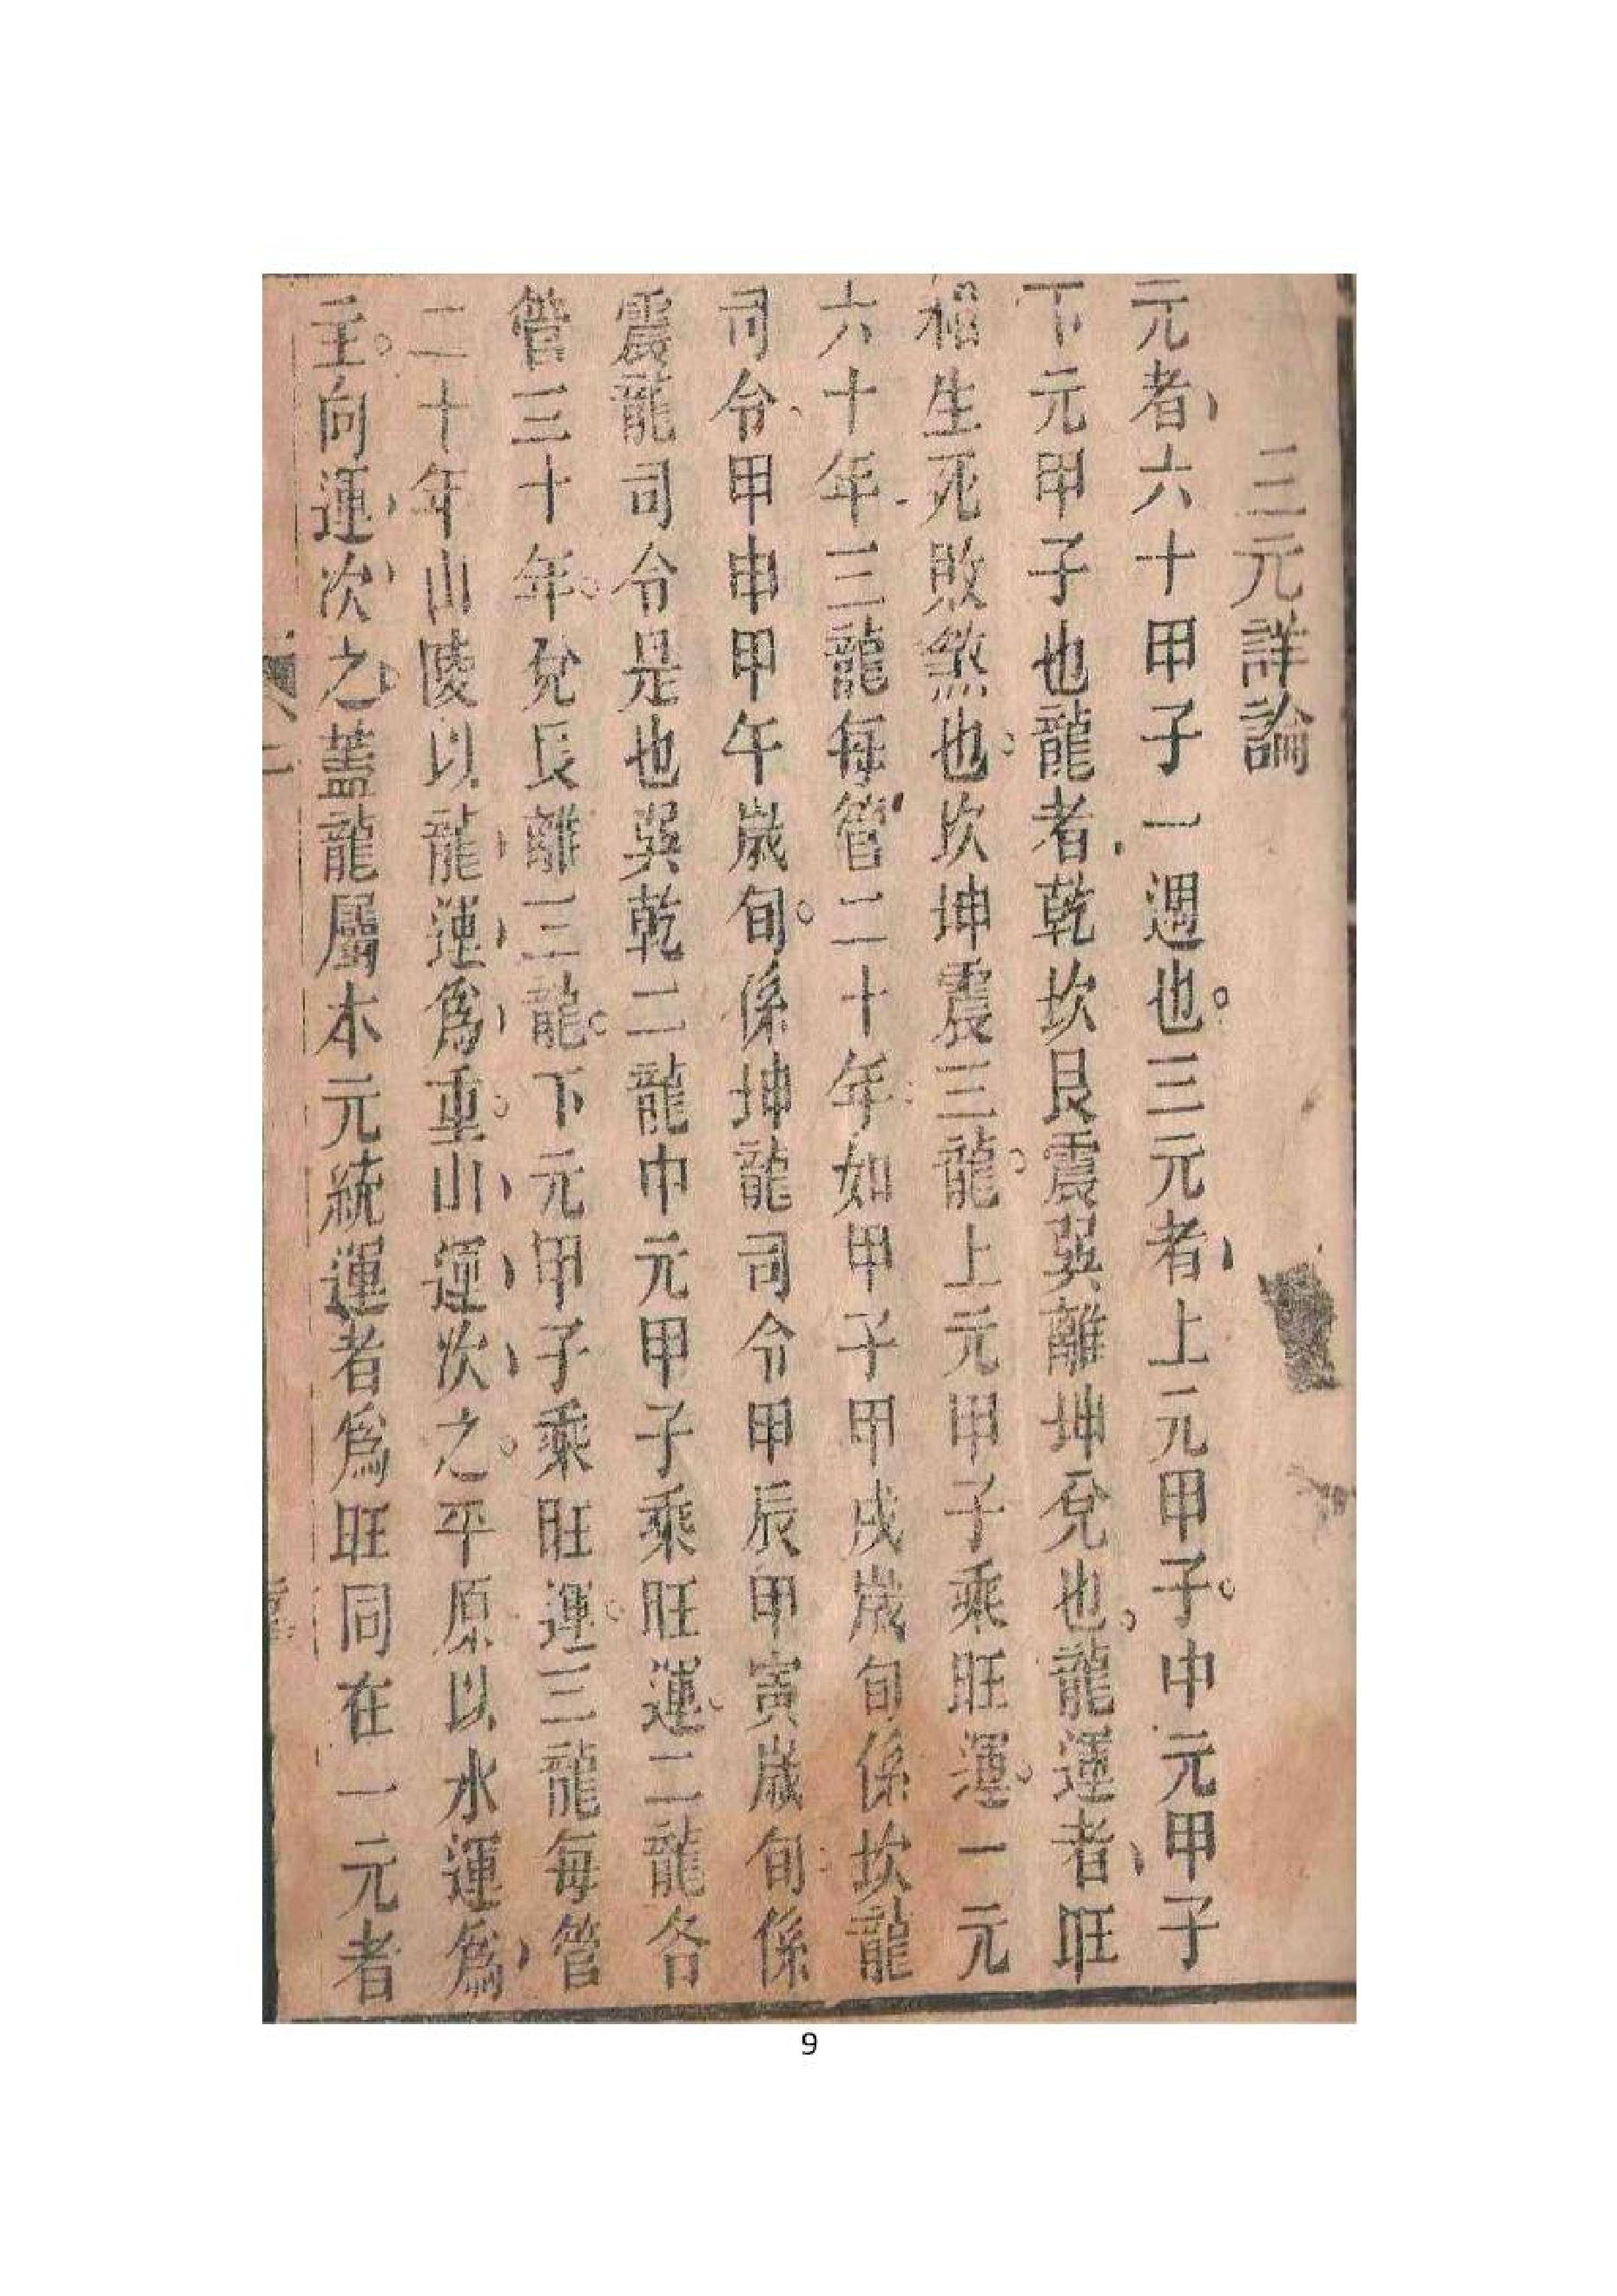 三元詳論
元者六十甲子一週也。三元者上元甲子。中元甲子
下元甲子也龍者乾坎艮震巽離坤兌也。龍運者旺
相生死敗煞也。坎坤震三龍。上元甲子乘旺運。一元
六十年三龍每管二十年如甲子甲戌歲旬係坎龍
司令甲申甲午歲旬。係坤龍司令甲辰甲寅歲旬係
震龍司令是也巽乾二龍中元甲子乘旺運。二龍各
管三十年。兌艮離三龍。下元甲子乘旺運。三龍每管
二十年山陵以龍運為重。山運次之。平原以水運為
主。向運次之蓋龍屬本元統運者為旺同在一元者
9